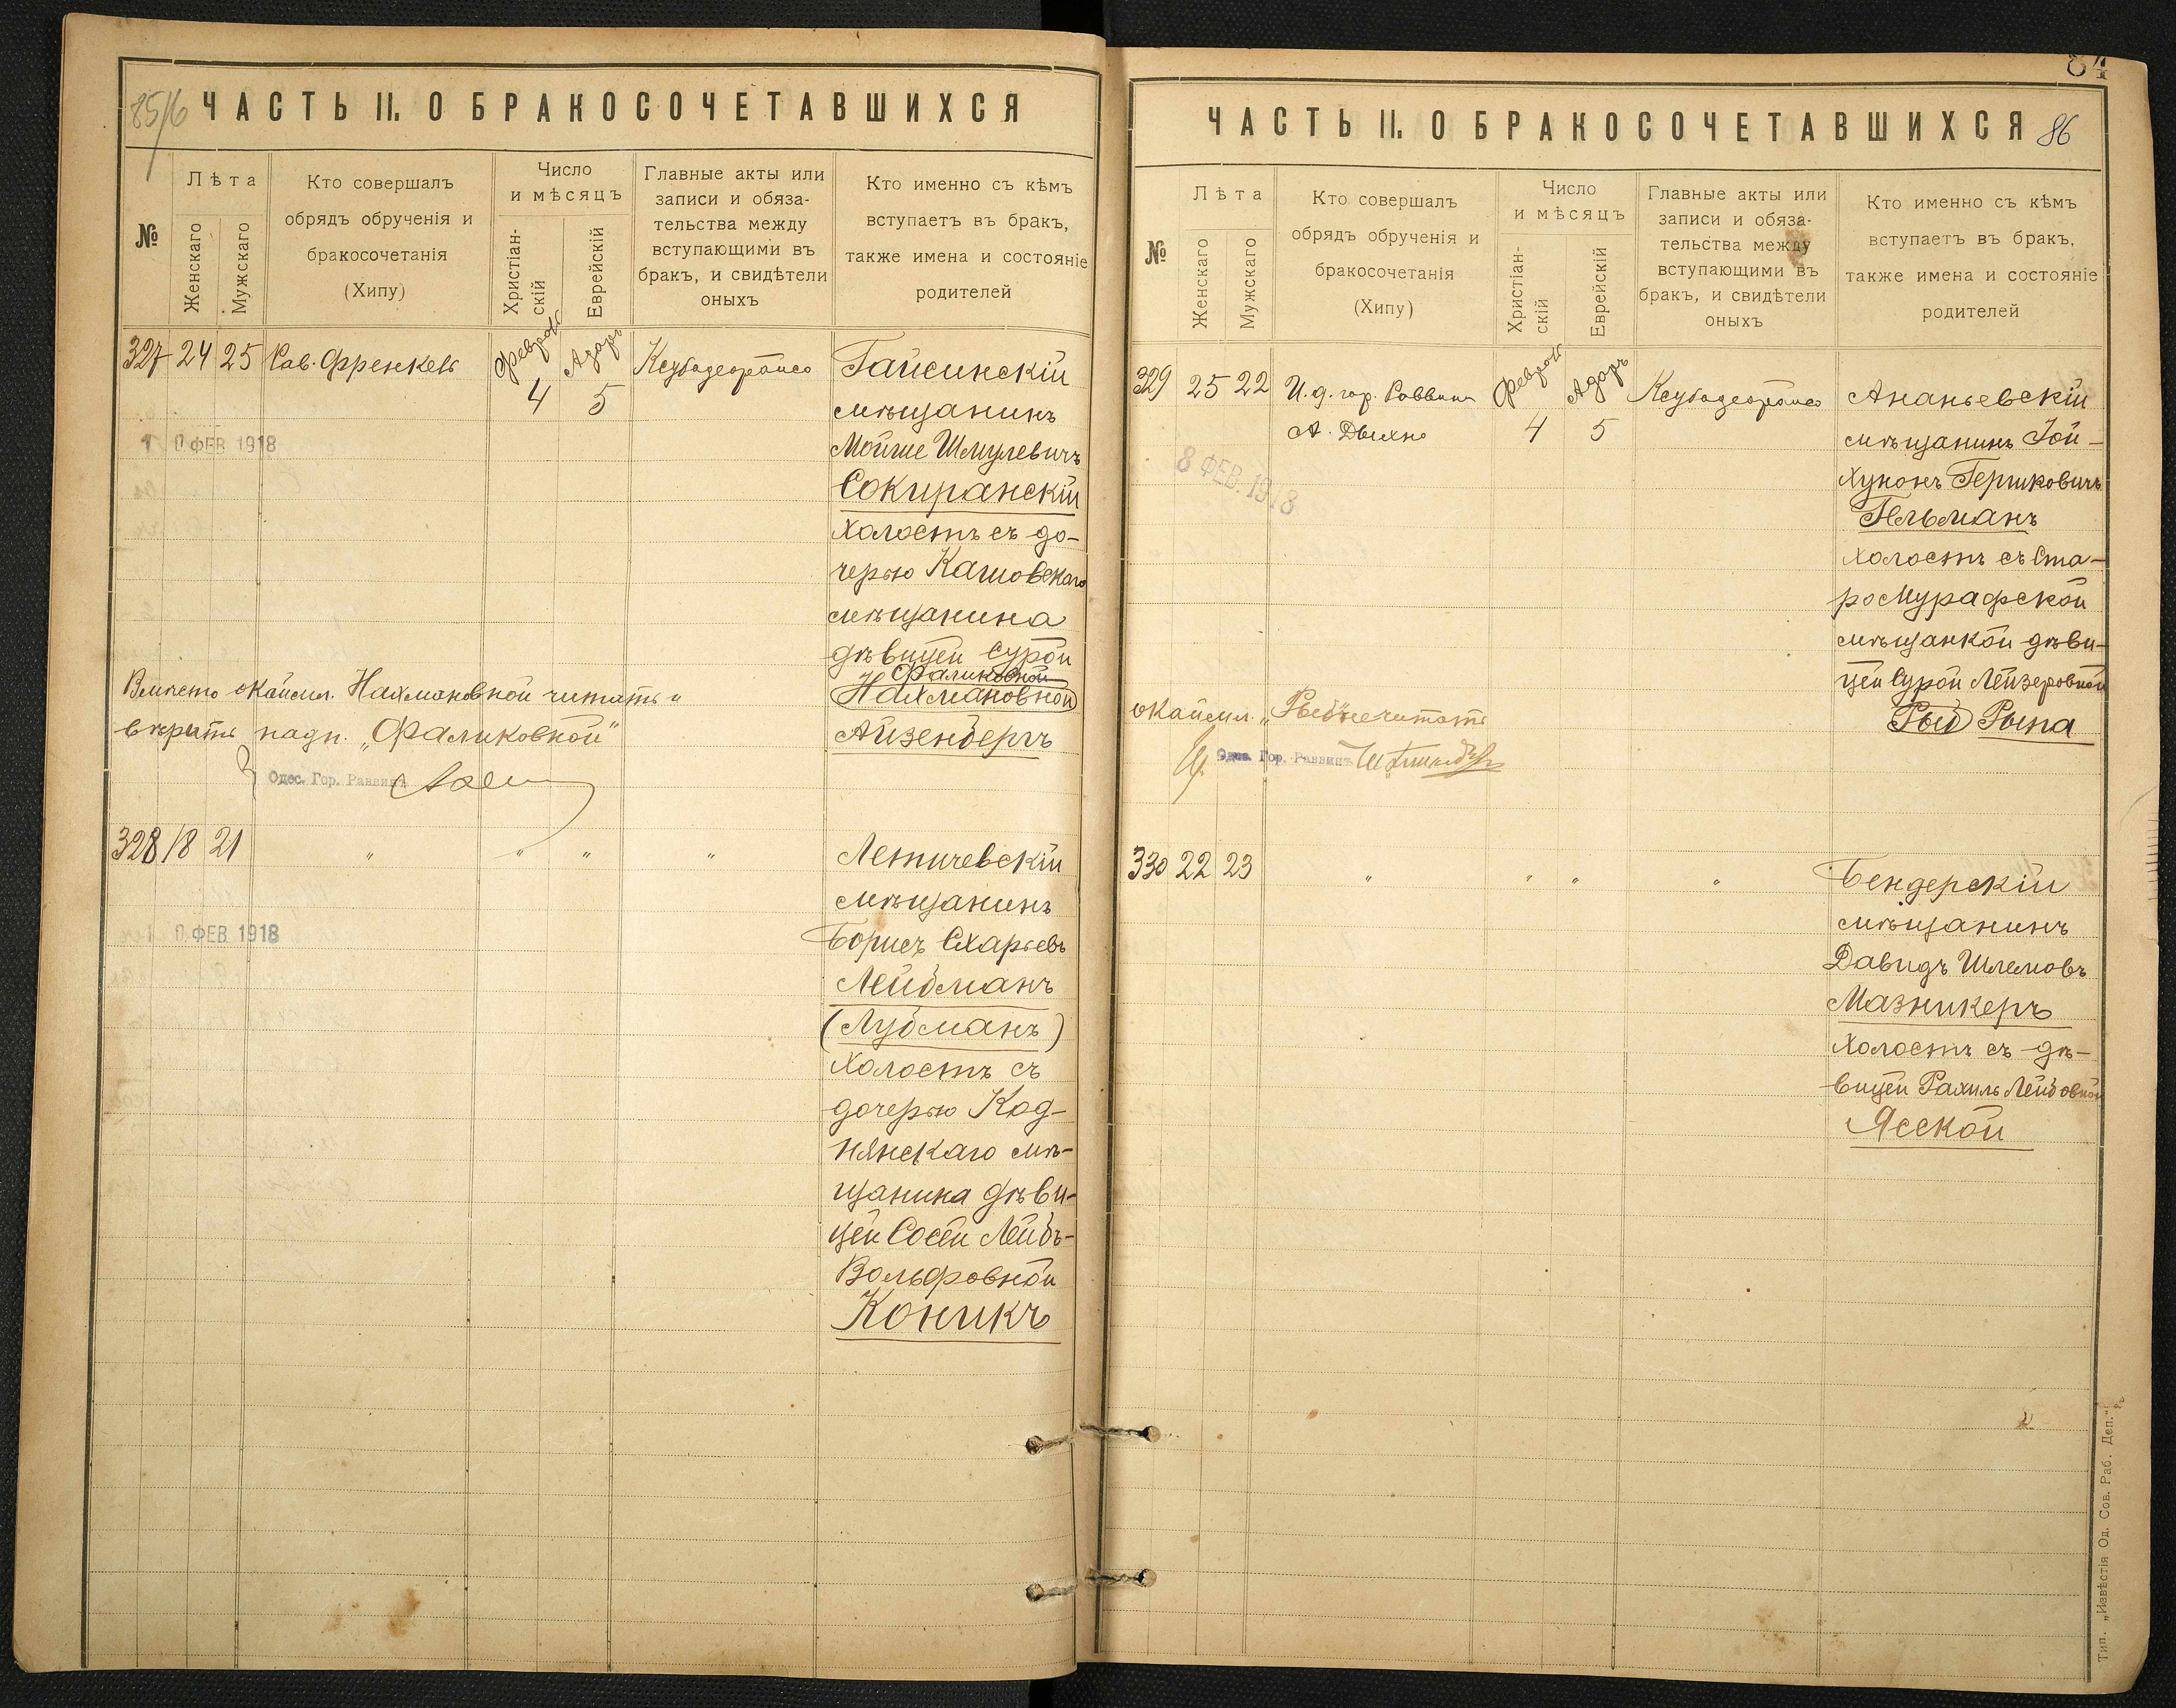 85/6 ЧАСТЬ II. О БРАКОСОЧЕТАВШИХСЯ
№
Лѣта
Женскаго
Мужскаго
Кто совершалъ
обрядъ обрученія и
бракосочетанія
(Хипу)
Число
и мѣсяцъ
Христіан-
скій
Еврейскій
Главные акты или
записи и обяза-
тельства между
вступающими въ
бракъ, и свидѣтели
оныхъ
Кто именно съ кѣмъ
вступаетъ въ бракъ,
также имена и состояніе
родителей
327 24 25 Рав. Френкель
Февраль 4
Адаръ 5
Гайсинскій
мѣщанинъ
Мойше Шмулевичъ
Сокирянскій
холостъ съ до-
черью Кашовскаго
мѣщанина
дѣвицей Сурой
Фаликовной
Нахмановной
Айзенбергъ
10 ФЕВ 1918
Вмѣсто окаймл. Нахмановной читать и
вѣрить надп. „Фаликовной"
Одес. Гор. Раввинъ
328 18 21 " " " "
Летичевскій
мѣщанинъ
Борисъ Схарьевъ
Лейбманъ
(Лубманъ)
холостъ съ
дочерью Код-
нянскаго мѣ-
щанина дѣви-
цей Сосей Лейбъ-
Вольфовной
Коникъ
10 ФЕВ 1918
84
ЧАСТЬ II. О БРАКОСОЧЕТАВШИХСЯ 86
№
Лѣта
Женскаго
Мужскаго
Кто совершалъ
обрядъ обрученія и
бракосочетанія
(Хипу)
Число
и мѣсяцъ
Христіан-
скій
Еврейскій
Главные акты или
записи и обяза-
тельства между
вступающими въ
бракъ, и свидѣтели
оныхъ
Кто именно съ кѣмъ
вступаетъ въ бракъ,
также имена и состояніе
родителей
329 25 22 И. д. гор. Раввина
А. Дыхно
Февраль 4
Адаръ 5
Ананьевскій
мѣщанинъ Іой-
Хунонъ Гершковичъ
Гельманъ
холостъ съ Ста-
ро Мурафской
мѣщанкой дѣви-
цей Сурой Лейзеровной
Рыб Рыпа
8 ФЕВ. 1918
окаймл. „Рыб" не читать
Одес. Гор. Раввинъ
330 22 23 " " " "
Бендерскій
мѣщанинъ
Давидъ Шлемовъ
Мазникеръ
холостъ съ дѣ-
вицей Рахиль Лейбовной
Ясской
Тип. „Извѣстія Од. Сов. Раб. Деп."